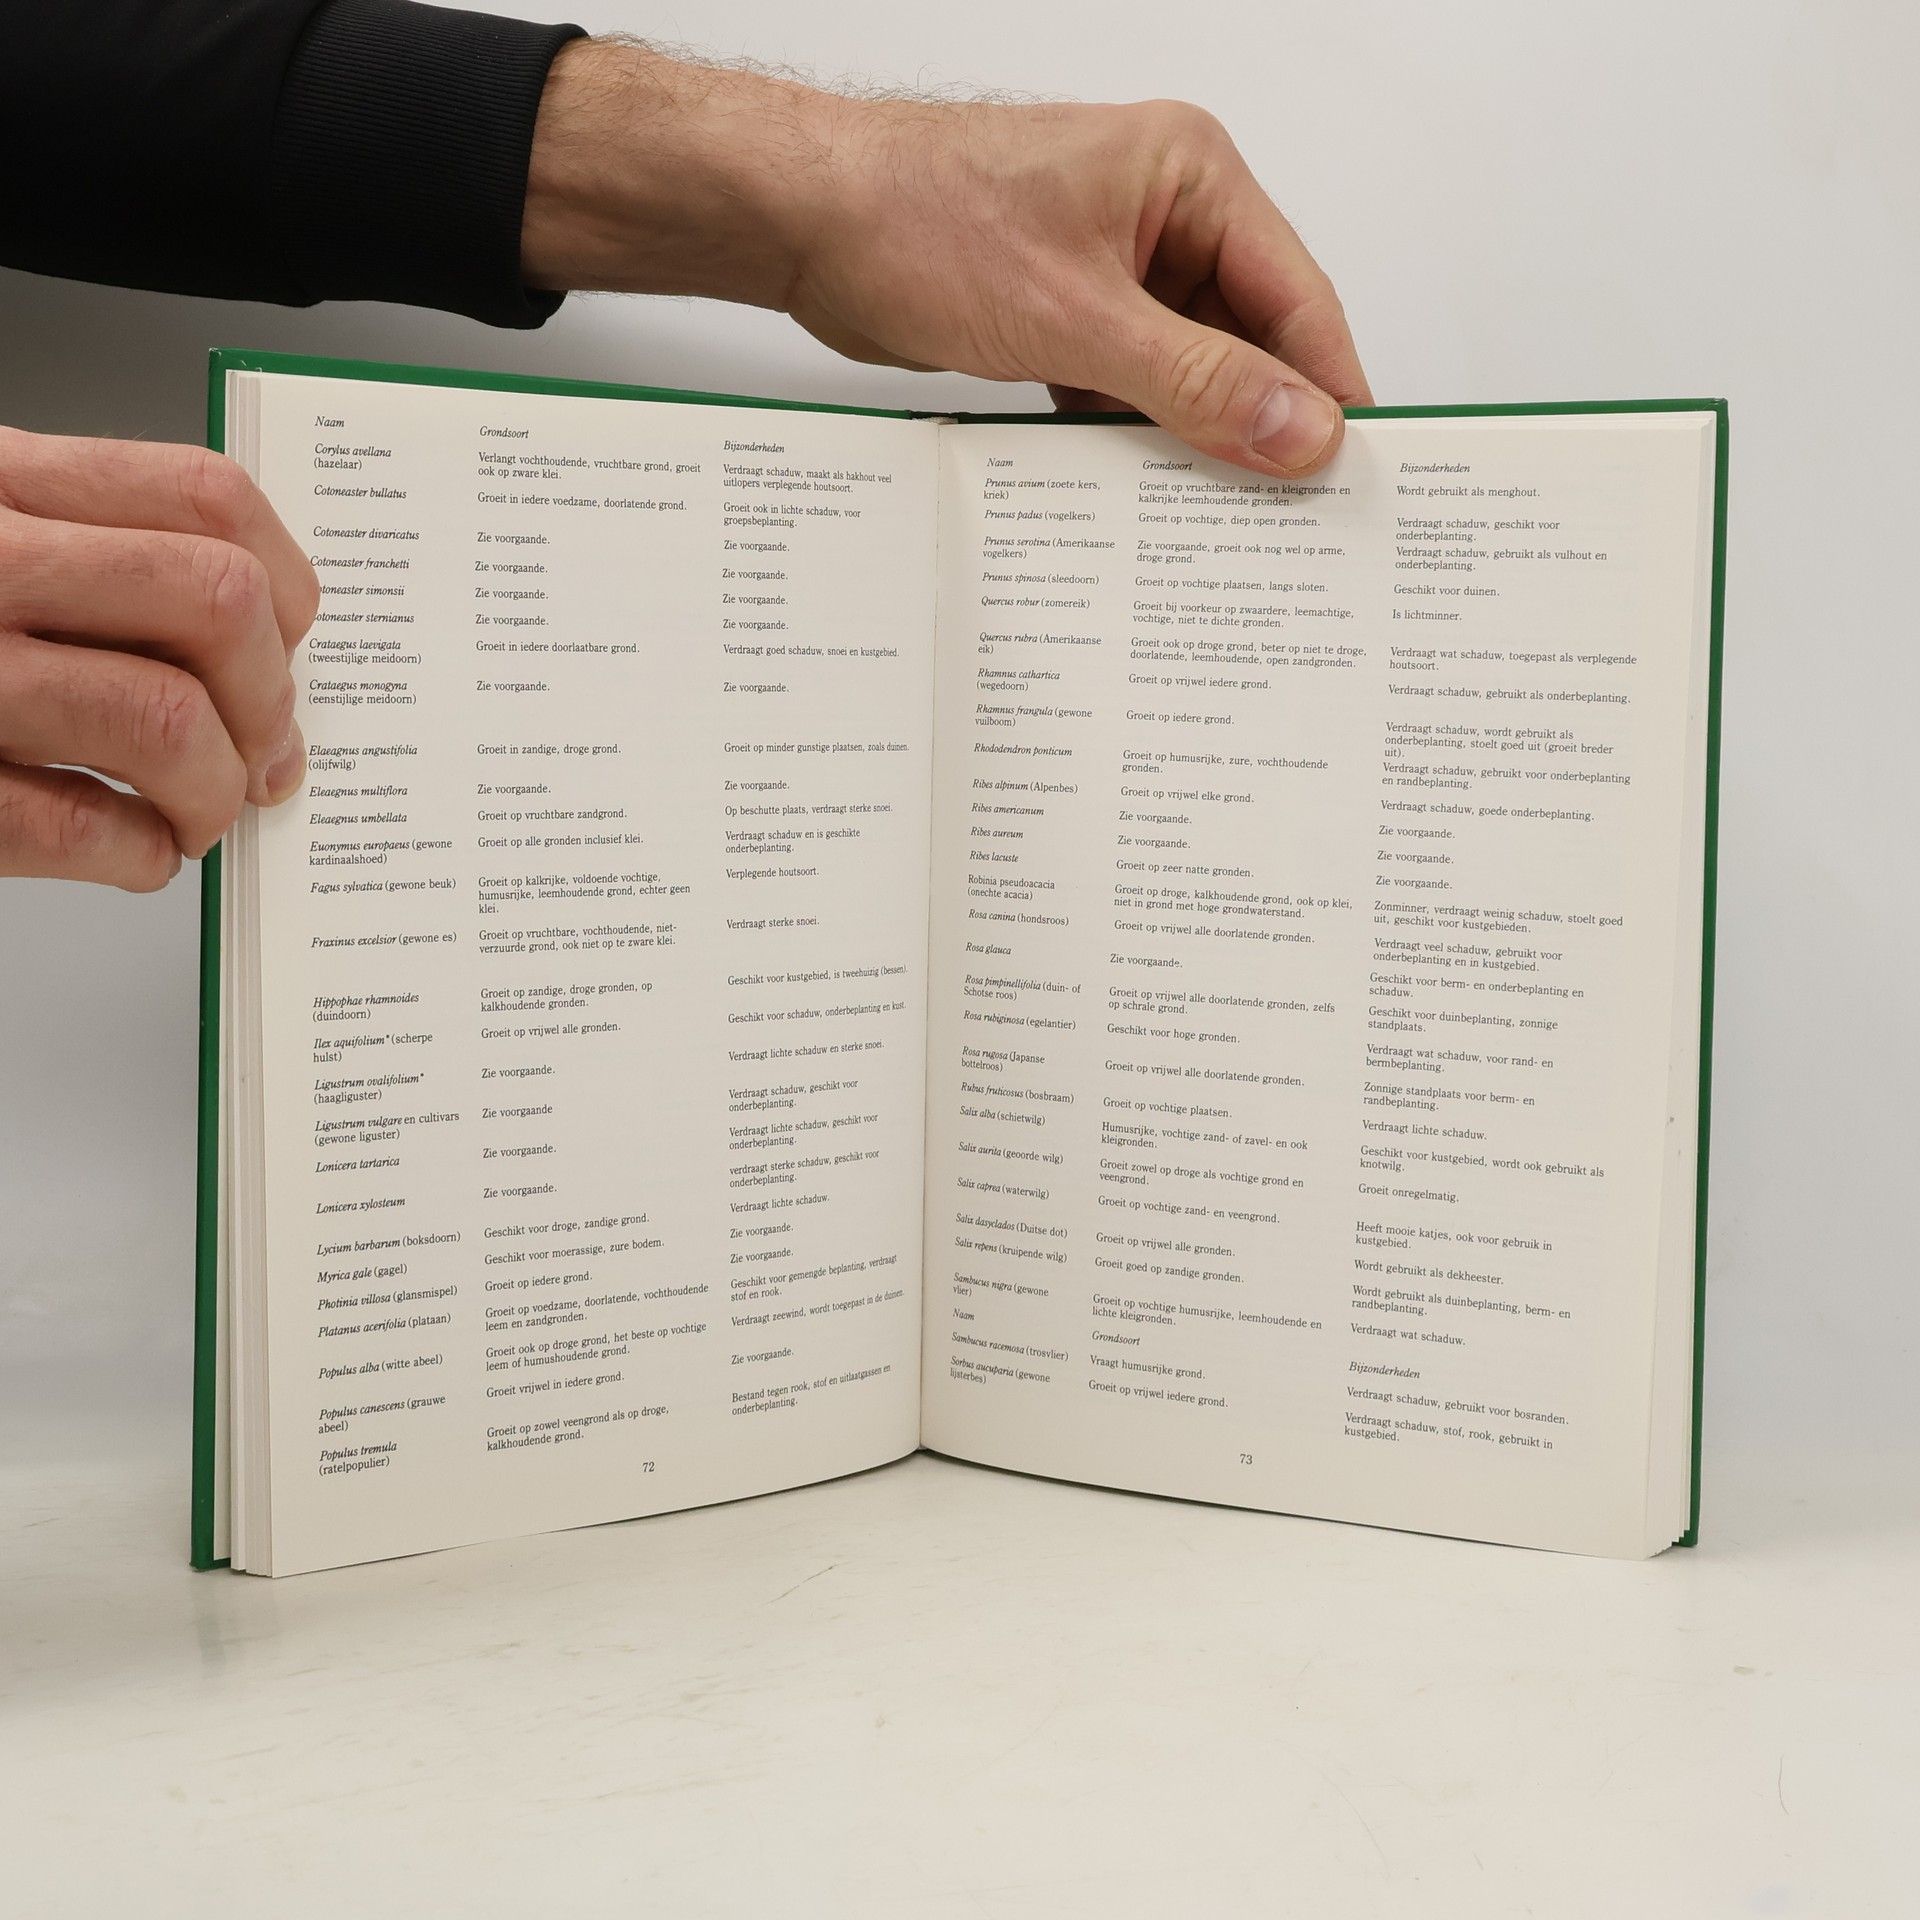 Naam
Grondsoort
Bijzonderheden
Corylus avellana
(hazelaar)
Verlangt vochthoudende, vruchtbare grond, groeit
ook op zware klei.
Verdraagt schaduw, maakt als hakhout veel
uitlopers verplegende houtsoort.
Cotoneaster bullatus
Groeit in iedere voedzame, doorlatende grond.
Groeit ook in lichte schaduw, voor
groepsbeplanting.
Cotoneaster divaricatus
Zie voorgaande.
Zie voorgaande.
Cotoneaster franchetti
Zie voorgaande.
Zie voorgaande.
otoneaster simonsii
Zie voorgaande.
Zie voorgaande.
otoneaster sternianus
Zie voorgaande.
Zie voorgaande.
Crataegus laevigata
(tweestijlige meidoorn)
Groeit in iedere doorlaatbare grond.
Verdraagt goed schaduw, snoei en kustgebied.
Crataegus monogyna
(eenstijlige meidoorn)
Zie voorgaande.
Zie voorgaande.
Elaeagnus angustifolia
(olijfwilg)
Groeit in zandige, droge grond.
Groeit op minder gunstige plaatsen, zoals duinen.
Eleaegnus multiflora
Zie voorgaande.
Zie voorgaande.
Eleaegnus umbellata
Groeit op vruchtbare zandgrond.
Op beschutte plaats, verdraagt sterke snoei.
Euonymus europaeus (gewone
kardinaalshoed)
Groeit op alle gronden inclusief klei.
Verdraagt schaduw en is geschikte
onderbeplanting.
Fagus sylvatica (gewone beuk)
Groeit op kalkrijke, voldoende vochtige,
humusrijke, leemhoudende grond, echter geen
klei.
Verplegende houtsoort.
Fraxinus excelsior (gewone es)
Groeit op vruchtbare, vochthoudende, niet-
verzuurde grond, ook niet op te zware klei.
Verdraagt sterke snoei.
Hippophae rhamnoides
(duindoorn)
Groeit op zandige, droge gronden, op
kalkhoudende gronden.
Geschikt voor kustgebied, is tweehuizig (bessen).
Ilex aquifolium* (scherpe
hulst)
Groeit op vrijwel alle gronden.
Geschikt voor schaduw, onderbeplanting en kust.
Ligustrum ovalifolium*
(haagliguster)
Zie voorgaande.
Verdraagt lichte schaduw en sterke snoei.
Ligustrum vulgare en cultivars
(gewone liguster)
Zie voorgaande
Verdraagt schaduw, geschikt voor
onderbeplanting.
Lonicera tartarica
Zie voorgaande.
Verdraagt lichte schaduw, geschikt voor
onderbeplanting.
Lonicera xylosteum
Zie voorgaande.
verdraagt sterke schaduw, geschikt voor
onderbeplanting.
Lycium barbarum (boksdoorn)
Geschikt voor droge, zandige grond.
Verdraagt lichte schaduw.
Myrica gale (gagel)
Geschikt voor moerassige, zure bodem.
Zie voorgaande.
Photinia villosa (glansmispel)
Groeit op iedere grond.
Zie voorgaande.
Platanus acerifolia (plataan)
Groeit op voedzame, doorlatende, vochthoudende
leem en zandgronden.
Geschikt voor gemengde beplanting, verdraagt
stof en rook.
Populus alba (witte abeel)
Groeit ook op droge grond, het beste op vochtige
leem of humushoudende grond.
Verdraagt zeewind, wordt toegepast in de duinen.
Populus canescens (grauwe
abeel)
Groeit vrijwel in iedere grond.
Zie voorgaande.
Populus tremula
(ratelpopulier)
Groeit op zowel veengrond als op droge,
kalkhoudende grond.
Bestand tegen rook, stof en uitlaatgassen en
onderbeplanting.
72
Naam
Grondsoort
Bijzonderheden
Prunus avium (zoete kers,
kriek)
Groeit op vruchtbare zand- en kleigronden en
kalkrijke leemhoudende gronden.
Wordt gebruikt als menghout.
Prunus padus (vogelkers)
Groeit op vochtige, diep open gronden.
Verdraagt schaduw, geschikt voor
onderbeplanting.
Prunus serotina (Amerikaanse
vogelkers)
Zie voorgaande, groeit ook nog wel op arme,
droge grond.
Verdraagt schaduw, gebruikt als vulhout en
onderbeplanting.
Prunus spinosa (sleedoorn)
Groeit op vochtige plaatsen, langs sloten.
Geschikt voor duinen.
Quercus robur (zomereik)
Groeit bij voorkeur op zwaardere, leemachtige,
vochtige, niet te dichte gronden.
Is lichtminner.
Quercus rubra (Amerikaanse
eik)
Groeit ook op droge grond, beter op niet te droge,
doorlatende, leemhoudende, open zandgronden.
Verdraagt wat schaduw, toegepast als verplegende
houtsoort.
Rhamnus cathartica
(wegedoorn)
Groeit op vrijwel iedere grond.
Verdraagt schaduw, gebruikt als onderbeplanting.
Rhamnus frangula (gewone
vuilboom)
Groeit op iedere grond.
Verdraagt schaduw, wordt gebruikt als
onderbeplanting, stoelt goed uit (groeit breder
uit).
Rhododendron ponticum
Groeit op humusrijke, zure, vochthoudende
gronden.
Verdraagt schaduw, gebruikt voor onderbeplanting
en randbeplanting.
Ribes alpinum (Alpenbes)
Groeit op vrijwel elke grond.
Verdraagt schaduw, goede onderbeplanting.
Ribes americanum
Zie voorgaande.
Zie voorgaande.
Ribes aureum
Zie voorgaande.
Zie voorgaande.
Ribes lacuste
Groeit op zeer natte gronden.
Zie voorgaande.
Robinia pseudoacacia
(onechte acacia)
Groeit op droge, kalkhoudende grond, ook op klei,
niet in grond met hoge grondwaterstand.
Zonminner, verdraagt weinig schaduw, stoelt goed
uit, geschikt voor kustgebieden.
Rosa canina (hondsroos)
Groeit op vrijwel alle doorlatende gronden.
Verdraagt veel schaduw, gebruikt voor
onderbeplanting en in kustgebied.
Rosa glauca
Zie voorgaande.
Geschikt voor berm- en onderbeplanting en
schaduw.
Rosa pimpinellifolia (duin- of
Schotse roos)
Groeit op vrijwel alle doorlatende gronden, zelfs
op schrale grond.
Geschikt voor duinbeplanting, zonnige
standplaats.
Rosa rubiginosa (egelantier)
Geschikt voor hoge gronden.
Verdraagt wat schaduw, voor rand- en
bermbeplanting.
Rosa rugosa (Japanse
bottelroos)
Groeit op vrijwel alle doorlatende gronden.
Zonnige standplaats voor berm- en
randbeplanting.
Rubus fruticosus (bosbraam)
Groeit op vochtige plaatsen.
Verdraagt lichte schaduw.
Salix alba (schietwilg)
Humusrijke, vochtige zand- of zavel- en ook
kleigronden.
Geschikt voor kustgebied, wordt ook gebruikt als
knotwilg.
Salix aurita (geoorde wilg)
Groeit zowel op droge als vochtige grond en
veengrond.
Groeit onregelmatig.
Salix caprea (waterwilg)
Groeit op vochtige zand- en veengrond.
Heeft mooie katjes, ook voor gebruik in
kustgebied.
Salix dasyclados (Duitse dot)
Groeit op vrijwel alle gronden.
Wordt gebruikt als dekheester.
Salix repens (kruipende wilg)
Groeit goed op zandige gronden.
Wordt gebruikt als duinbeplanting, berm- en
randbeplanting.
Sambucus nigra (gewone
vlier)
Groeit op vochtige humusrijke, leemhoudende en
lichte kleigronden.
Verdraagt wat schaduw.
Naam
Grondsoort
Bijzonderheden
Sambucus racemosa (trosvlier)
Vraagt humusrijke grond.
Verdraagt schaduw, gebruikt voor bosranden.
Sorbus aucuparia (gewone
lijsterbes)
Groeit op vrijwel iedere grond.
Verdraagt schaduw, stof, rook, gebruikt in
kustgebied.
73